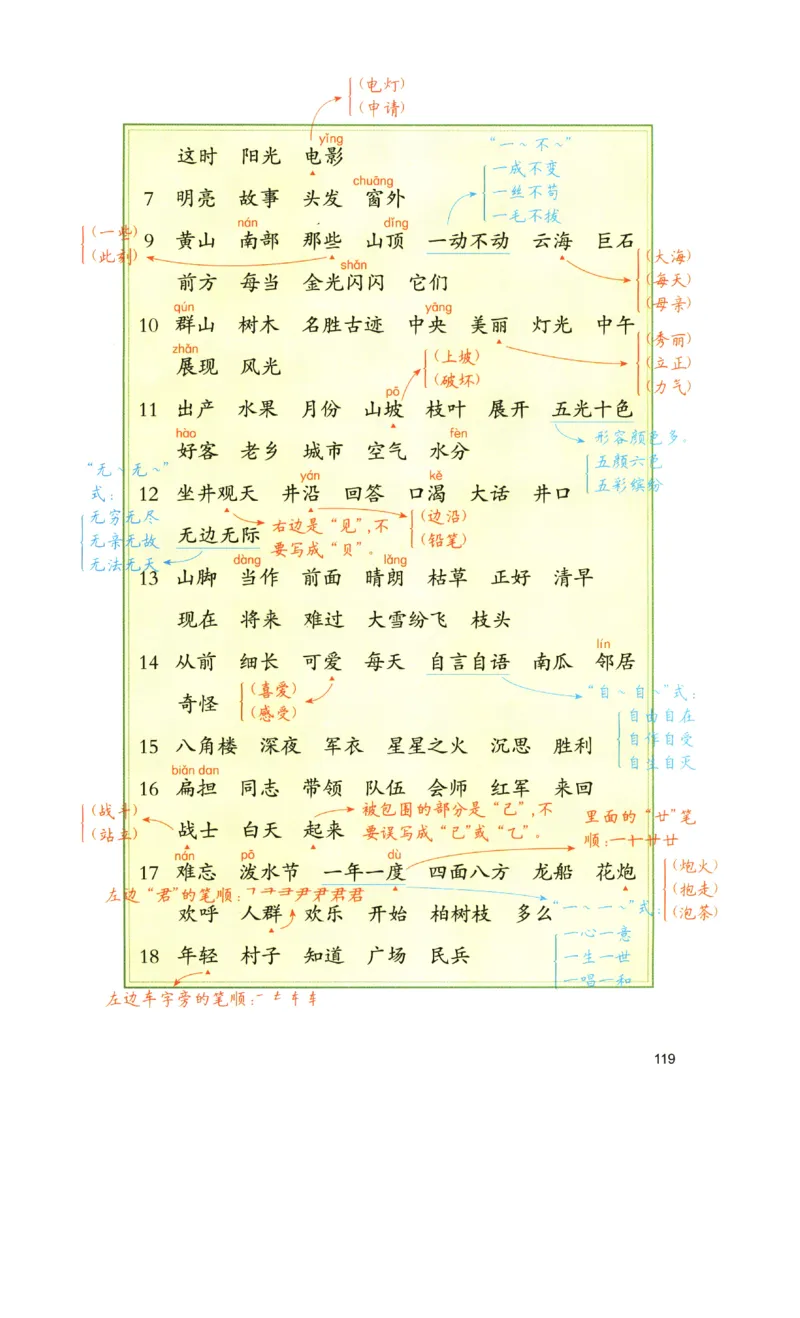 (电灯)
(申请)
yǐng
这时 阳光 电影
“一～不～”
一成不变
一丝不苟
一毛不拔
chuāng
7 明亮 故事 头发 窗外
nán dǐng
9 黄山 南部 那些 山顶 一动不动 云海 巨石
(一些)
(此刻)
(大海)
(每天)
(母亲)
shǎn
前方 每当 金光闪闪 它们
qún yāng
10 群山 树木 名胜古迹 中央 美丽 灯光 中午
(秀丽)
(立正)
(力气)
zhǎn
展现 风光
(上坡)
(破坏)
pō
11 出产 水果 月份 山坡 枝叶 展开 五光十色
形容颜色多。
五颜六色
五彩缤纷
hào fèn
好客 老乡 城市 空气 水分
“无～无～”
式：
无穷无尽
无亲无故
无法无天
yán kě
12 坐井观天 井沿 回答 口渴 大话 井口
右边是“见”,不
要写成“贝”。
(边沿)
(铅笔)
无边无际
dàng lǎng
13 山脚 当作 前面 晴朗 枯草 正好 清早
现在 将来 难过 大雪纷飞 枝头
lín
14 从前 细长 可爱 每天 自言自语 南瓜 邻居
奇怪
(喜爱)
(感受)
“自～自～”式：
自由自在
自作自受
自生自灭
15 八角楼 深夜 军衣 星星之火 沉思 胜利
biǎn dan
16 扁担 同志 带领 队伍 会师 红军 来回
(战斗)
(站立)
被包围的部分是“己”,不
要误写成“已”或“乙”。
里面的“廿”笔
顺：一十廾廿
战士 白天 起来
nán pō dù
17 难忘 泼水节 一年一度 四面八方 龙船 花炮
(炮火)
(抱走)
(泡茶)
左边“君”的笔顺：㇕彐彐尹尹君君
“一～一～”式：
一心一意
一生一世
一唱一和
欢呼 人群 欢乐 开始 柏树枝 多么
18 年轻 村子 知道 广场 民兵
左边车字旁的笔顺：
119